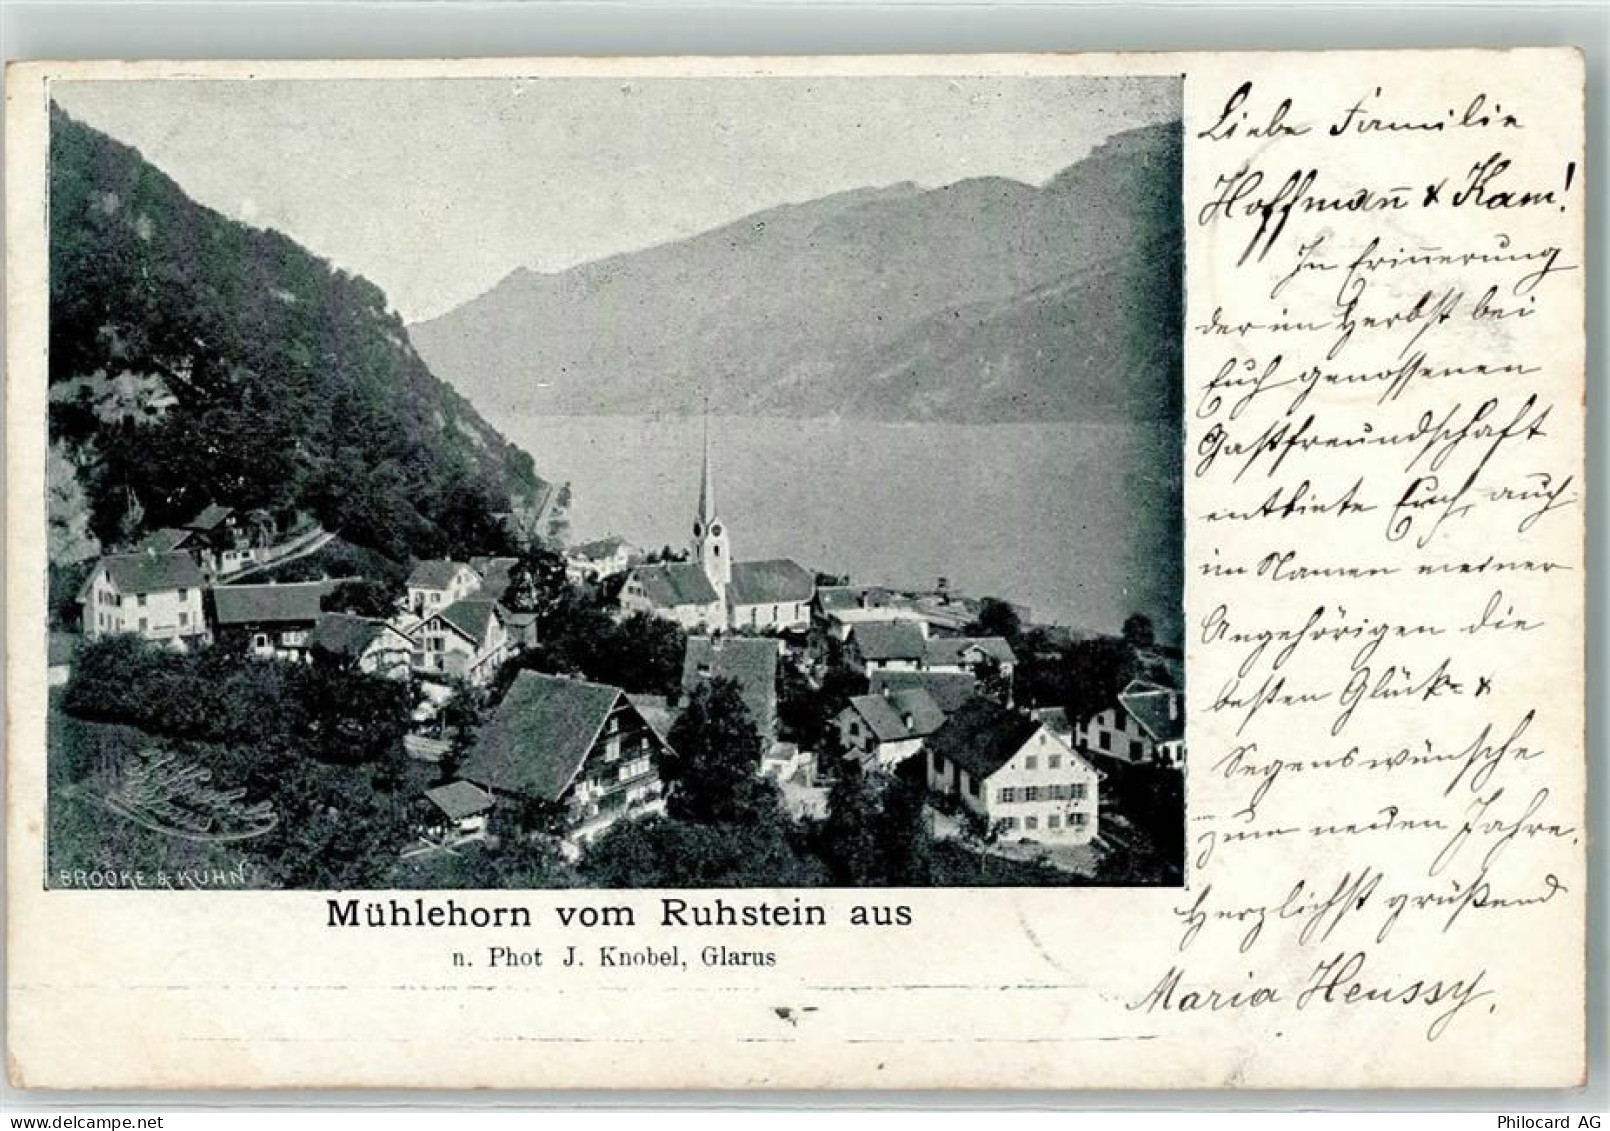 Liebe Familie
Hoffmann̄ & Kam!
In Erin̄erung
der im Herbst bei
Euch genossenen
Gastfreundschaft
entbiete Euch, auch
im Namen meiner
Angehörigen die
besten Glück- &
Segenswünsche
zum neuen Jahre.
Herzlichst grüßend
Maria Heussy.
BROOKE & KUHN
Mühlehorn vom Ruhstein aus
n. Phot J. Knobel, Glarus
Philocard AG
www.delcampe.net